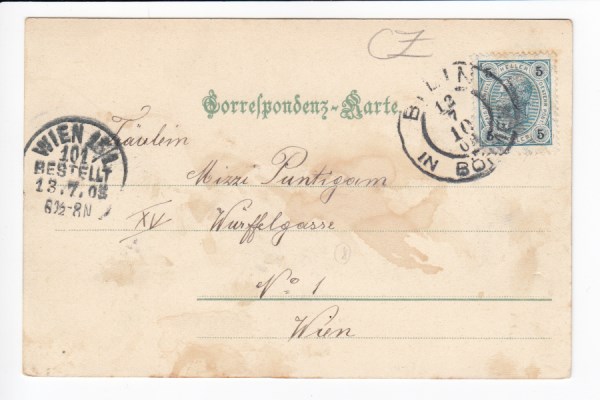 CZ
BILIN
12
7
10
IN BÖHMEN
HELLER
5
5 5
Correspondenz-Karte.
WIEN
101
BESTELLT
13.7.03
6½-8N
Fräulein
Mizzi Puntigam
XV Wurffelgasse
No 1
Wien